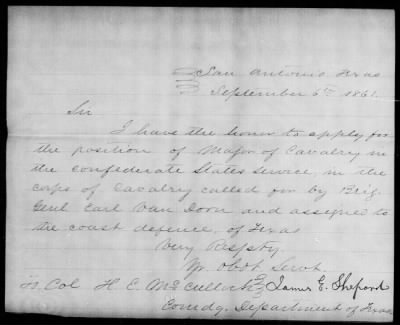 San Antonio Texas
September 6th 1861.
Sir
I have the honor to apply for
the position of Major of Cavalry in
the confederate States service, in the
corps of Cavalry called for by Brig
Genl Earl Van Dorn and assigned to
the coast defence, of Texas
Very Respfty
Yr. obdt Servt
To Col H. E. McCulloch James E. Shepard
Comdg. Department of Texas